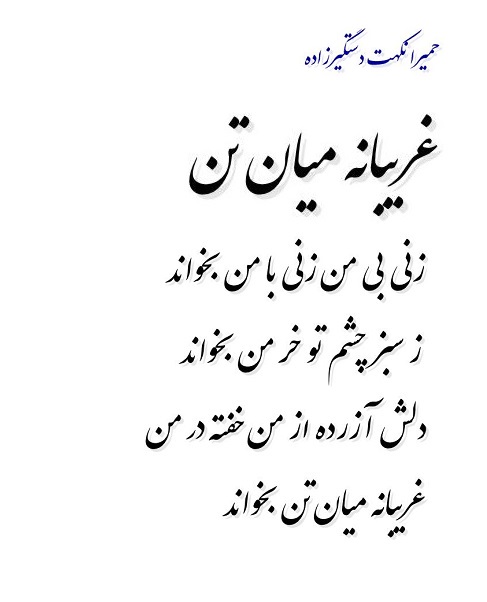 حمیرا نکهت دستگیرزاده
غریبانه میان تن
زنی بی من زنی با من بخواند
ز سبز چشم تو خر من بخواند
دلش آزرده از من خفته در من
غریبانه میان تن بخواند